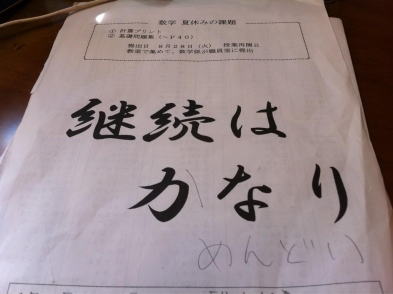 数学 夏休みの課題
① 計算プリント
② 基礎問題集(~P40)
提出日 8月28日(火) 授業再開日
教室で集めて、数学係が職員室に提出
継続は
力なり
めんどい